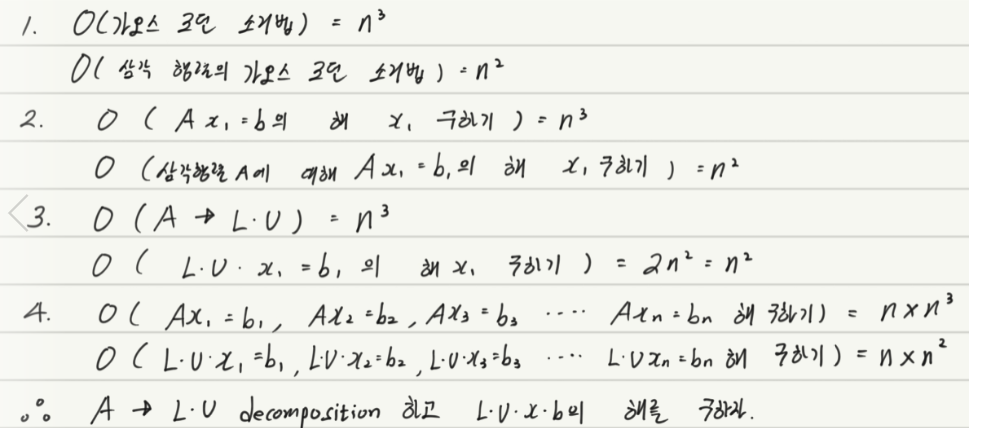 1. O(가우스 조던 소거법) = n³
O( 삼각 행렬의 가우스 조던 소거법 ) = n²
2. O ( Ax₁ = b의 해 x₁ 구하기 ) = n³
O (삼각행렬 A에 대해 Ax₁ = b₁의 해 x₁ 구하기 ) = n²
<3. O ( A → L·U ) = n³
O ( L·U·x₁ = b₁ 의 해 x₁ 구하기 ) = 2n² = n²
4. O ( Ax₁ = b₁, Ax₂ = b₂, Ax₃ = b₃ ···· Axn = bn 해 구하기) = n×n³
O ( L·U·x₁ = b₁, LU·x₂ = b₂, L·U·x₃ = b₃ ···· L·Uxn = bn 해 구하기) = n×n²
∴ A → L·U decomposition 하고 L·U·x·b의 해를 구하자.